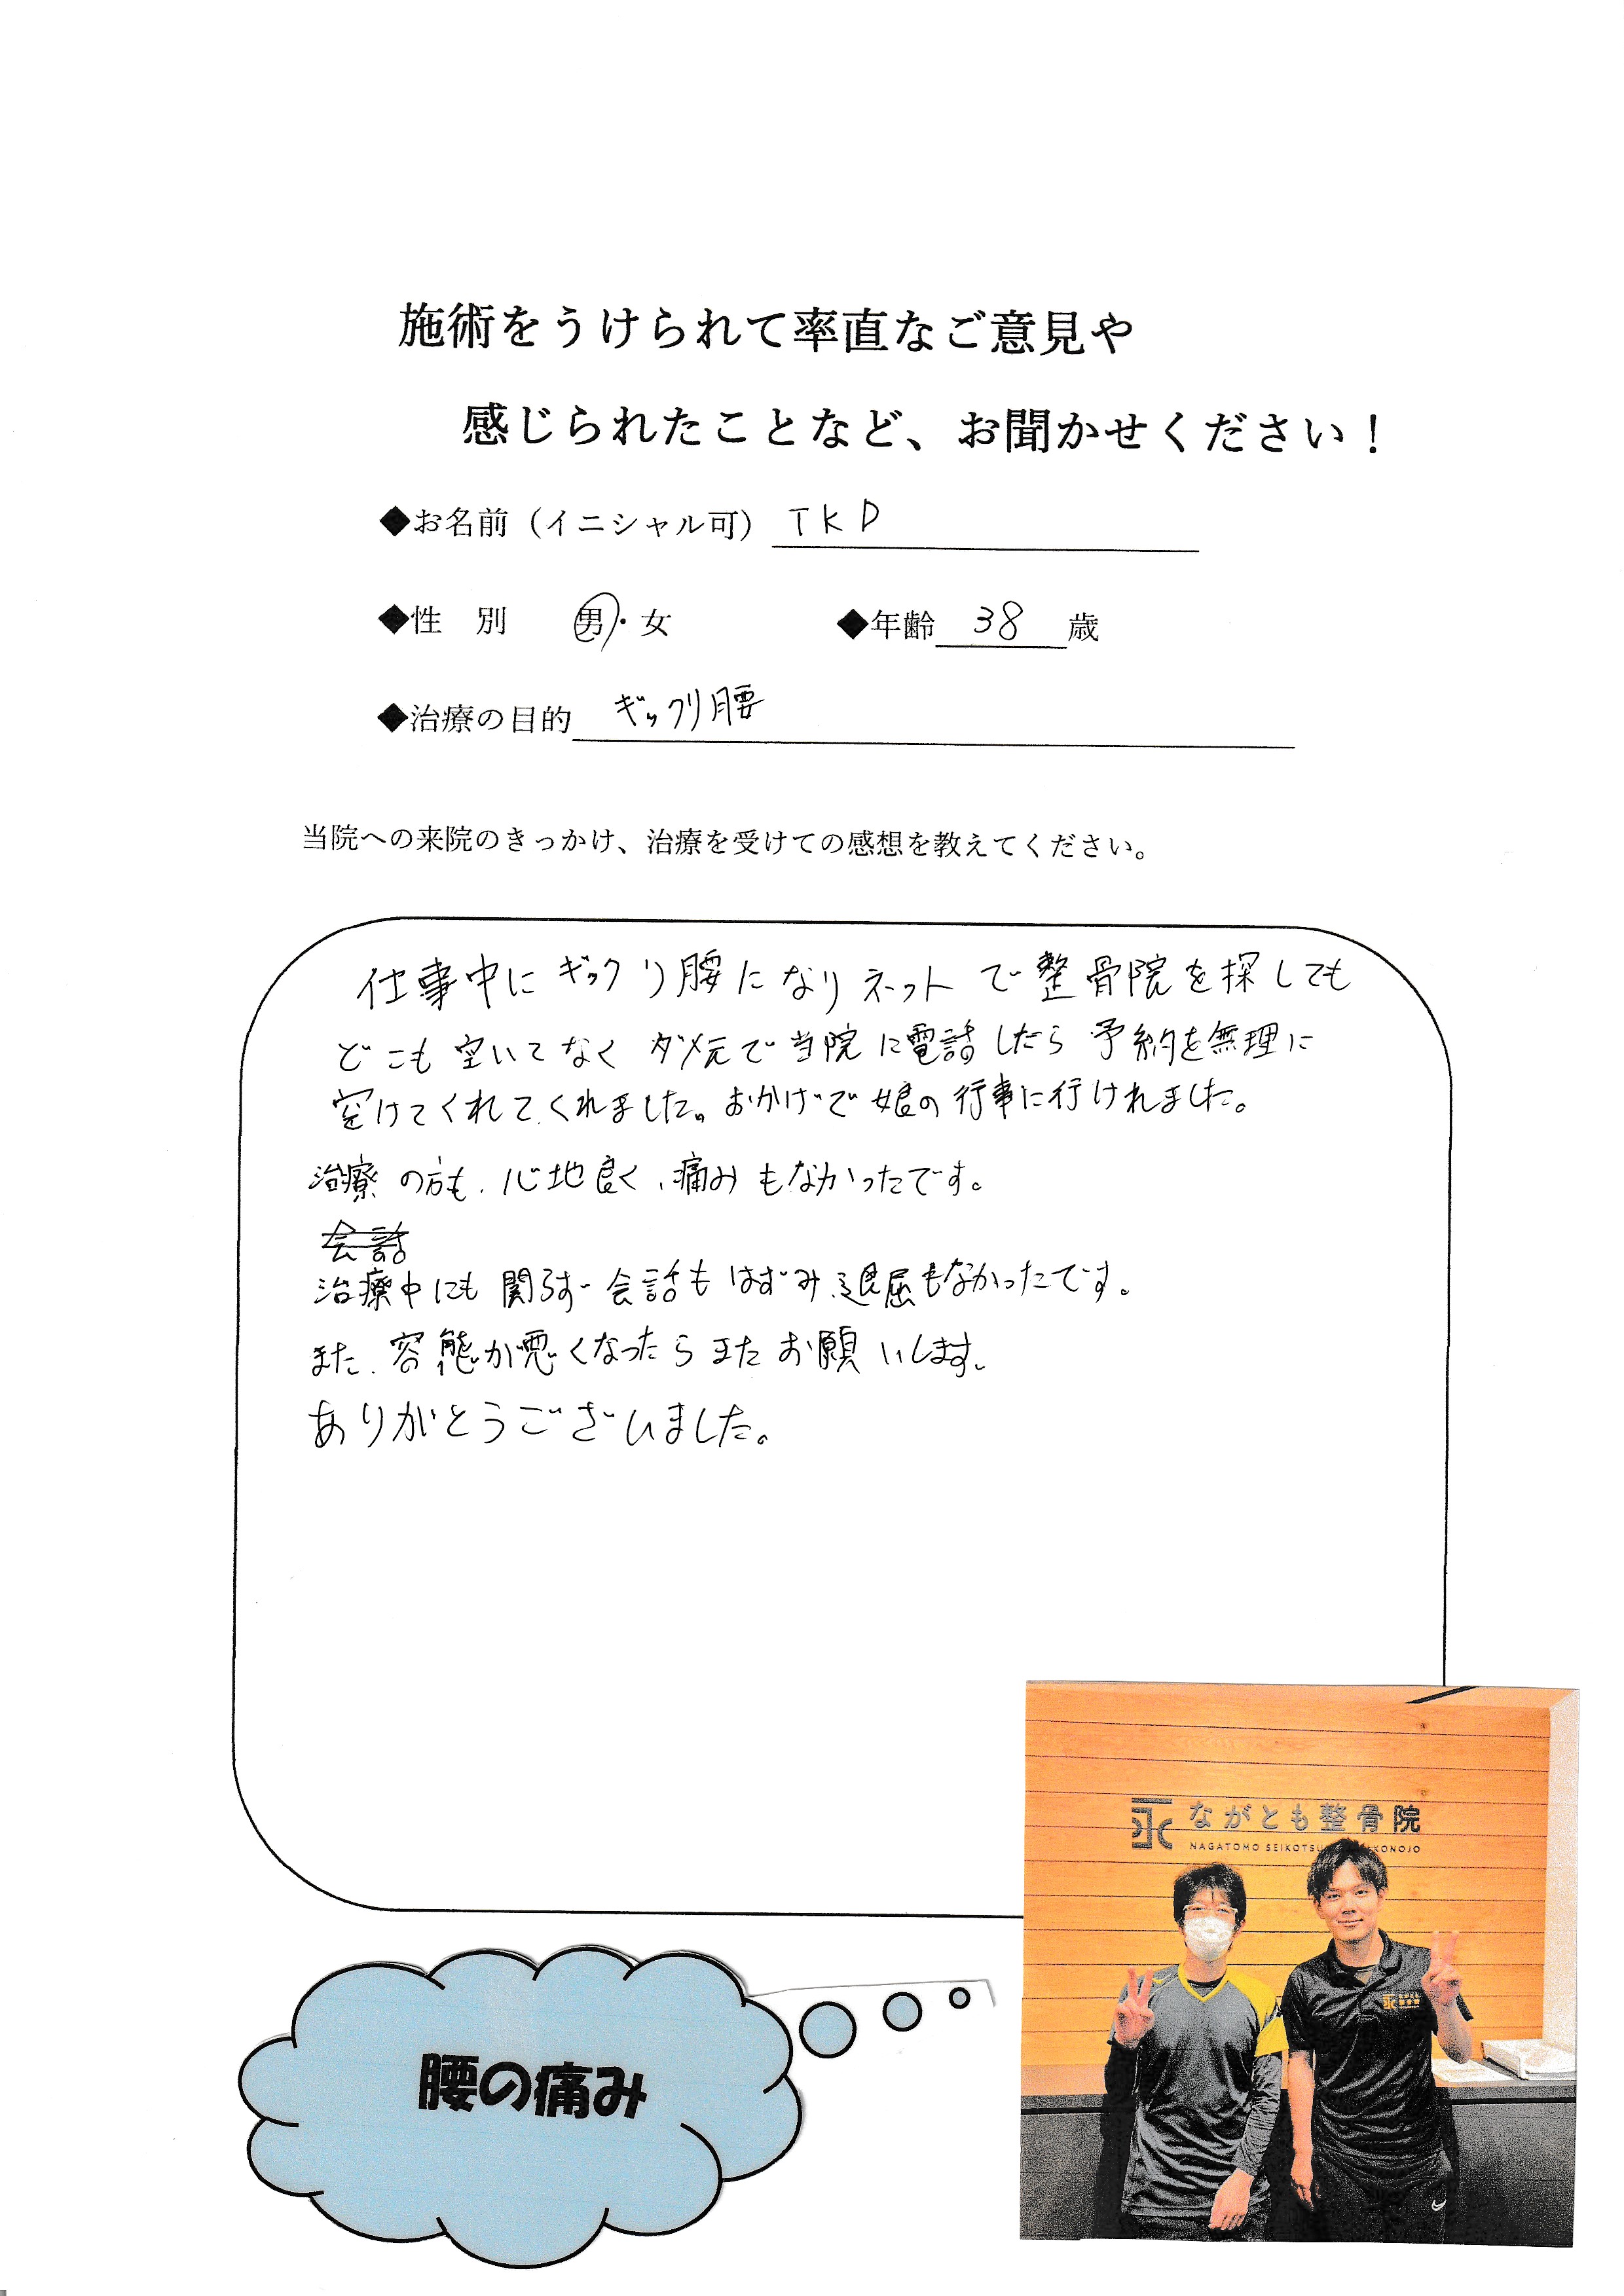 施術をうけられて率直なご意見や
感じられたことなど、お聞かせください！
◆お名前（イニシャル可） TKD
◆性 別 男・女 ◆年齢 38 歳
◆治療の目的 ギックリ腰
当院への来院のきっかけ、治療を受けての感想を教えてください。
仕事中にギックリ腰になりネットで整骨院を探しても
どこも空いてなくダメ元で当院に電話したら予約を無理に
空けてくれてくれました。おかげで娘の行事に行けれました。
治療の方も、心地良く、痛みもなかったです。
会話
治療中にも関らず会話もはずみ、退屈もなかったです。
また、容態が悪くなったらまたお願いします。
ありがとうございました。
ながとも整骨院
NAGATOMO SEIKOTSU
腰の痛み